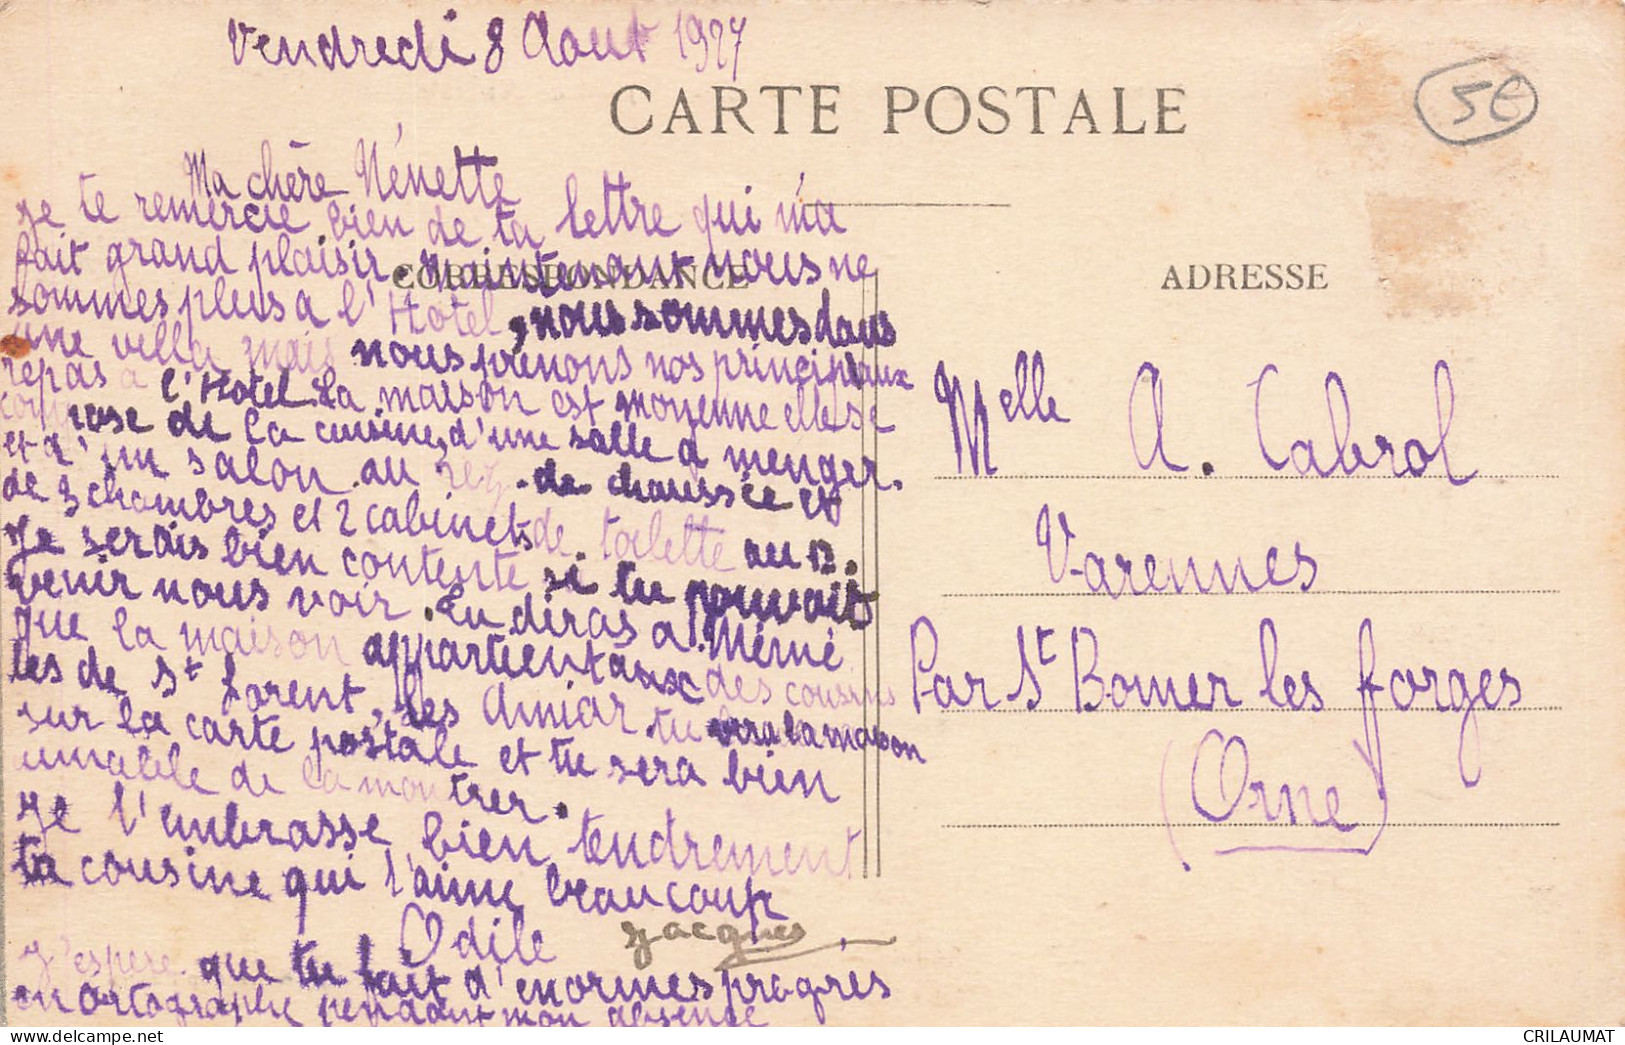 Vendredi 8 Aout 1927
CARTE POSTALE
5€
Ma chère Nénette
Je te remercie bien de ta lettre qui m'a
fait grand plaisir. Maintenant nous ne
sommes plus a l'Hotel, nous sommes dans
une villa mais nous prenons nos principaux
repas a l'Hotel. La maison est moyenne elle se
compose de la cuisine, d'une salle a menger.
et d'un salon au rez-de chaussée et
de 3 chambres et 2 cabinets de toilette au
Je serais bien contente si tu pouvait
venir nous voir. Tu diras a Mémé
que la maison appartient aux des cousins
les de St Lorent, les Amiar tu vera la maison
sur la carte postale et tu sera bien
emable de la montrer.
Je t'embrasse bien tendrement
ta cousine qui t'aime beaucoup
Odile Jacques
J'espere que tu fait d'enormes progres
en ortographe pendant mon absence
CORRESPONDANCE
ADRESSE
Melle A. Cabrol
Varennes
Par St Bomer les forges
(Orne)
CRILAUMAT